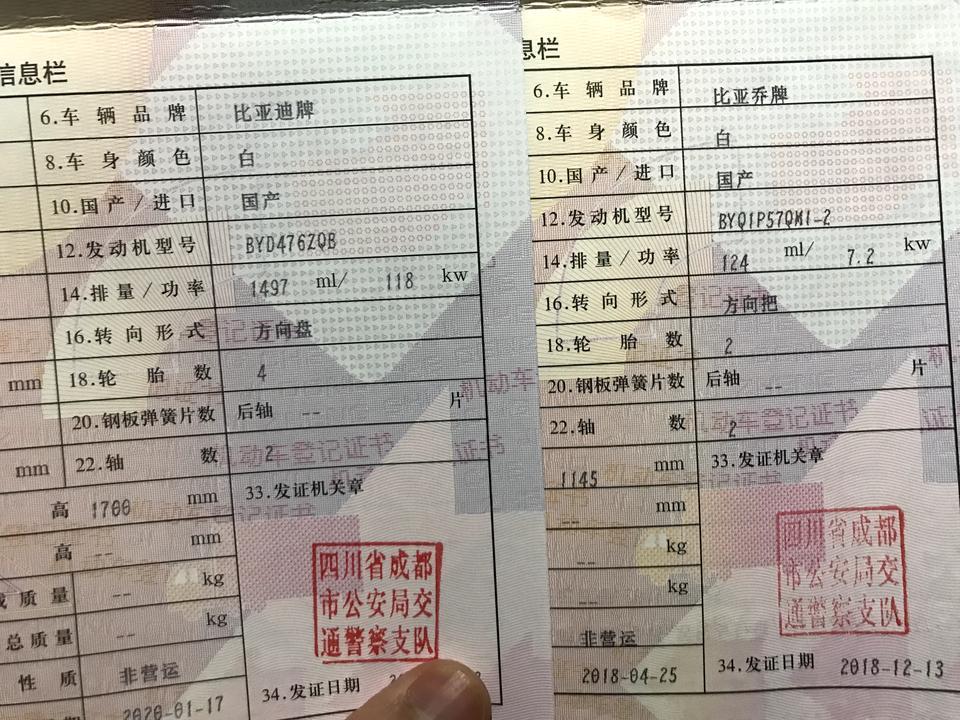 信息栏
6.车辆品牌 比亚迪牌
8.车身颜色 白
10.国产/进口 国产
12.发动机型号 BYD476ZQB
14.排量/功率 1497 ml/ 118 kw
16.转向形式 方向盘
mm 18.轮胎数 4
20.钢板弹簧片数 后轴 -- 片
mm 22.轴数 2
高 1700 mm 33.发证机关章
高 -- mm
质量 -- kg
总质量 -- kg
四川省成都
市公安局交
通警察支队
性质 非营运
34.发证日期
2020-01-17
机动车登记证书
息栏
6.车辆品牌 比亚乔牌
8.车身颜色 白
10.国产/进口 国产
12.发动机型号 BYQ1P57QMI-2
14.排量/功率 124 ml/ 7.2 kw
16.转向形式 方向把
18.轮胎数 2
20.钢板弹簧片数 后轴 -- 片
22.轴数 2
1145 mm 33.发证机关章
-- mm
-- kg
-- kg
四川省成都
市公安局交
通警察支队
非营运
2018-04-25 34.发证日期 2018-12-13
机动车登记证书